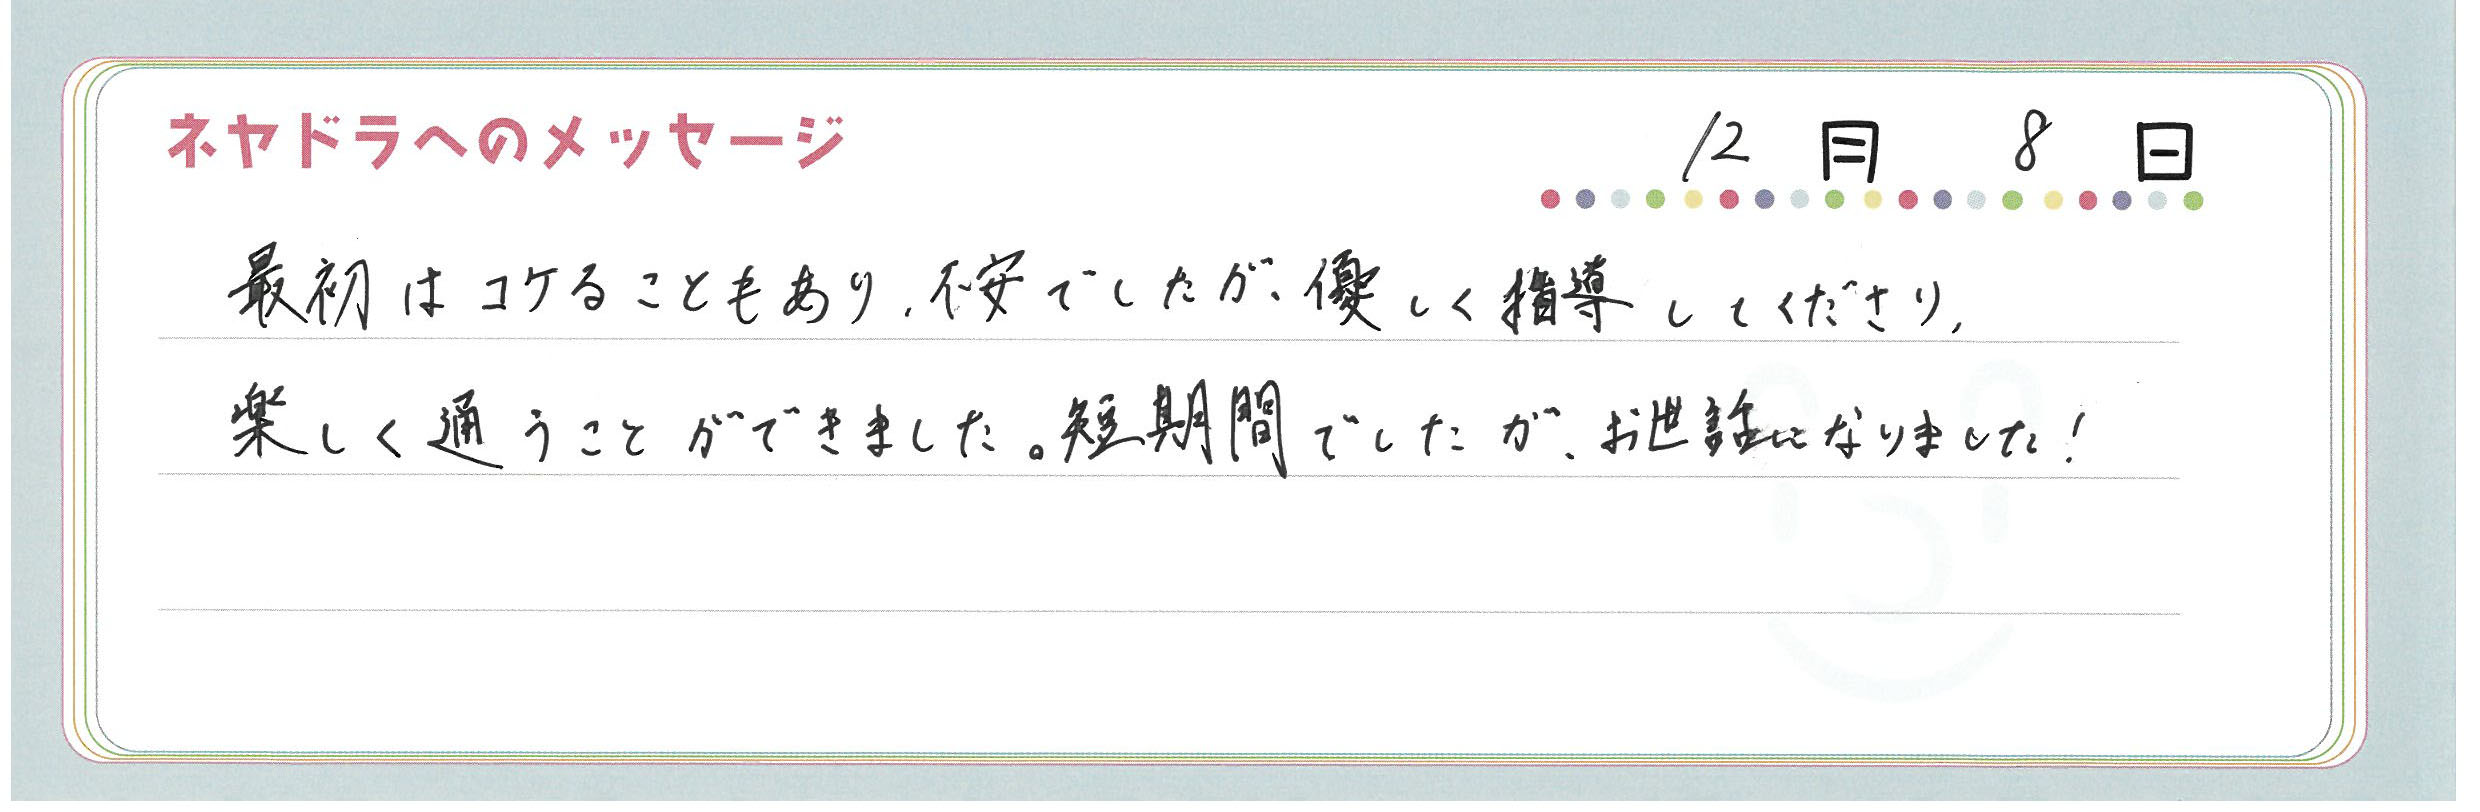 ネヤドラへのメッセージ
12月 8日
最初はコケることもあり、不安でしたが、優しく指導してくださり、
楽しく通うことができました。短期間でしたが、お世話になりました！